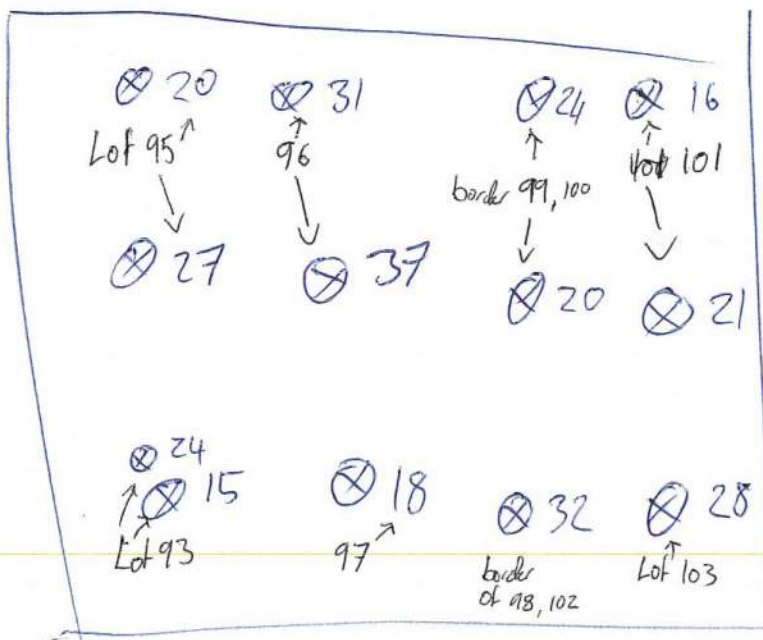 20 31 24 16
Lot 95 96 border 99, 100 101
27 37 20 21
24
15 18 32 28
Lot 93 97 border of 98, 102 Lot 103